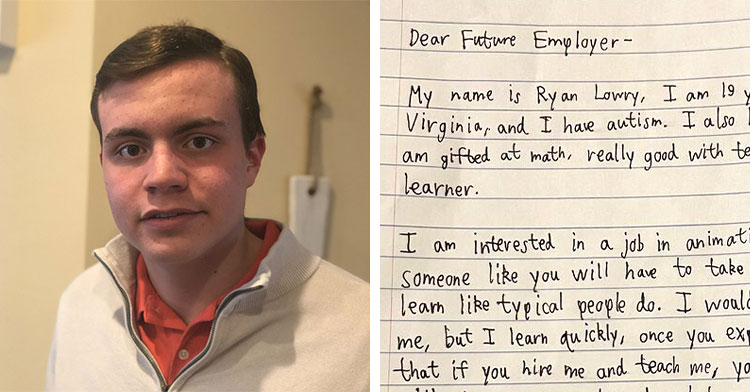 Dear Future Employer-
My name is Ryan Lowry, I am 19
Virginia, and I have autism. I also
am gifted at math, really good with
learner.
I am interested in a job in
someone like you will have to take
learn like typical people do. I
me, but I learn quickly, once you
that if you hire me and teach me,